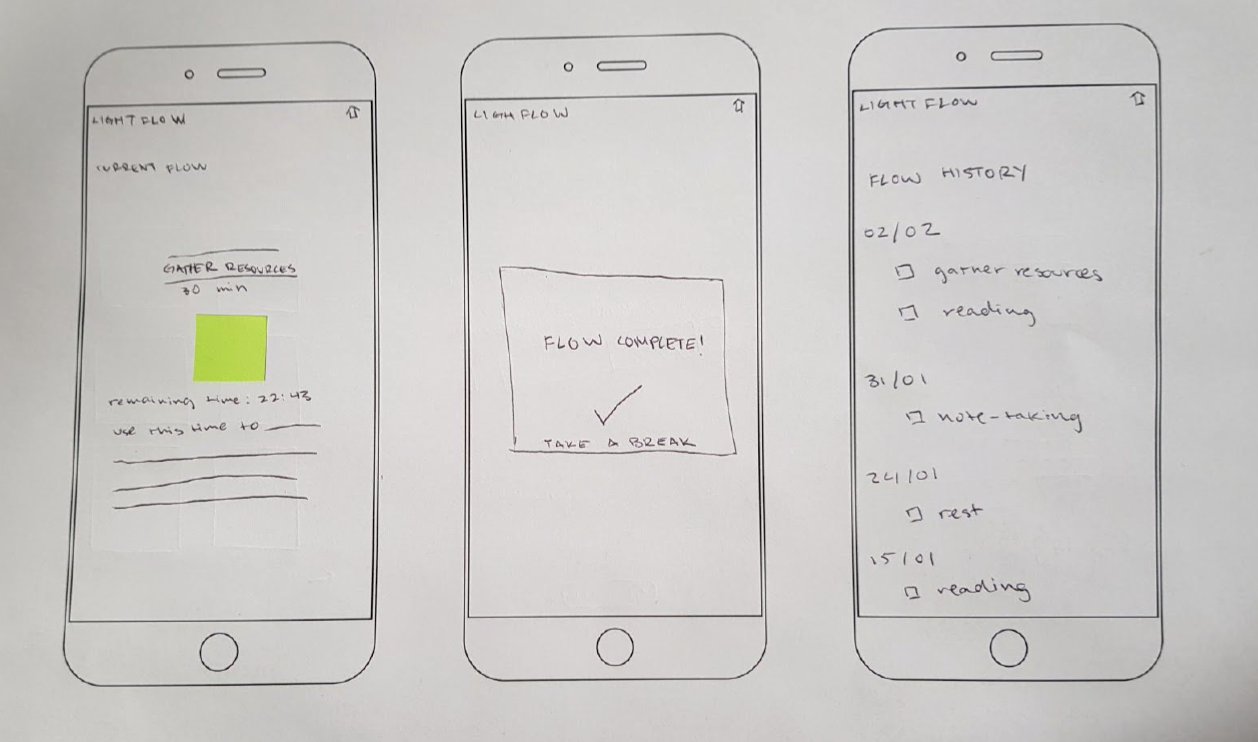 LIGHT FLOW
CURRENT FLOW
GATHER RESOURCES
30 min
remaining time: 22:43
use this time to
LIGH FLOW
FLOW COMPLETE!
TAKE A BREAK
LIGHT FLOW
FLOW HISTORY
02/02
gather resources
reading
31/01
note-taking
24/01
rest
15/01
reading